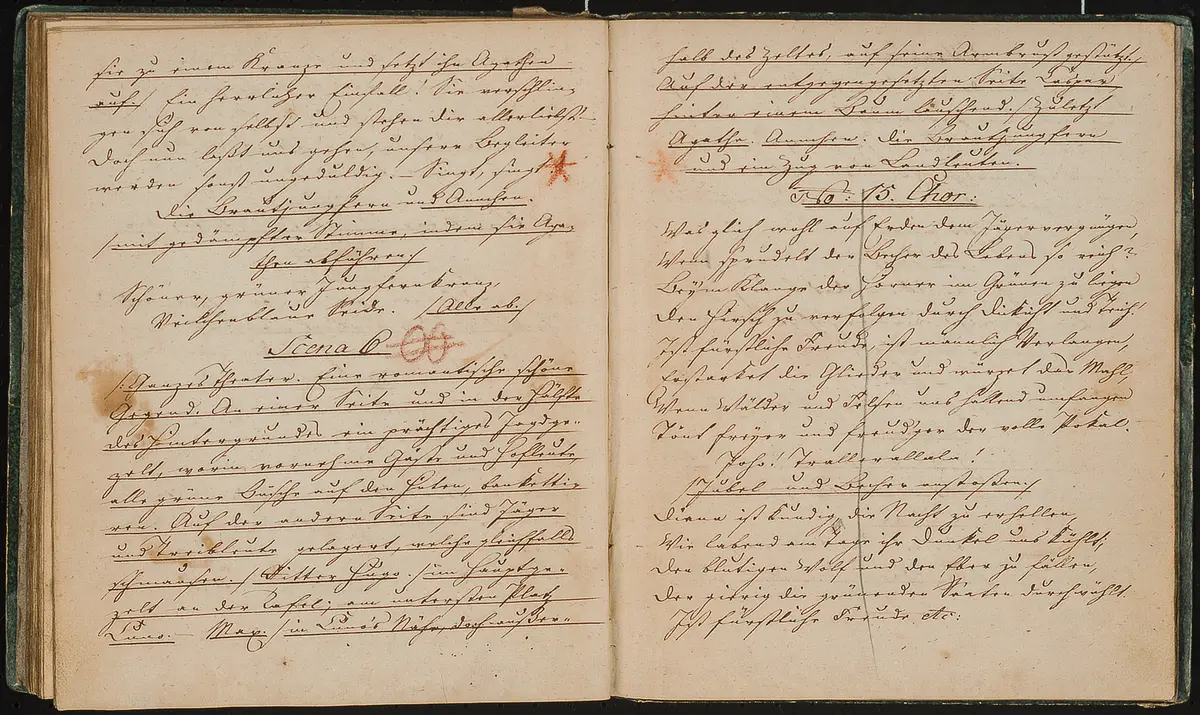 sie zu einem Kranze und setzt ihn Agathen
auf:/ Ein herrlicher Einfall! Sie verschlin-
gen sich von selbst und stehen dir allerliebst.
Doch nun laßt uns gehen, unsere Begleiter
werden sonst ungeduldig. – Singt, singt!
Die Brautjungfern und Annchen.
/mit gedämpfter Stimme, indem sie Aga-
then abführen/
Schöner, grüner Jungfernkranz,
Veilchenblaue Seide. /Alle ab:/
Scena 6
/: Ganzes Theater. Eine romantische schöne
Gegend. An einer Seite und in der Hälfte
des Hintergrundes ein prächtiges Jagdge-
zelt, worin vornehme Gäste und Hofleute,
alle grüne Büsche auf den Huten, bankettie-
ren. Auf der andern Seite sind Jäger
und Treibleute gelagert, welche gleichfalls
schmausen. / Ritter Hugo :/ im Hauptge-
zelt an der Tafel; am untersten Platz
Cuno. – Max. /in Cuno's Nähe, doch außer-
halb des Zeltes, auf seine Armbrust gestützt:/
Auf der entgegengesetzten Seite Caspar,
hinter einem Baum lauschend. /Zuletzt
Agathe. Annchen. die Brautjungfern
und ein Zug von Landleuten.
No: 15. Chor:
Was glich wohl auf Erden dem Jägervergnügen,
Wem sprudelt der Becher des Lebens so reich?
Beym Klange der Hörner im Grünen zu liegen
Den Hirsch zu verfolgen durch Dickicht und Teich.
Ist fürstliche Freude ist männlich Verlangen,
Erstarket die Glieder und würzet das Mahl,
Wenn Wälder und Felsen uns hallend umfangen
Tönt freyer und freud'ger der volle Pokal.
Joho! Trallerallala!
/Jubel und Becher anstoßen:/
Diana ist kundig die Nacht zu erhellen,
Wie labend am Tage ihr Dunkel uns kühlt,
Den blutigen Wolf und den Eber zu fällen,
Der gierig die grünenden Saaten durchwühlt.
Ist fürstliche Freude etc: